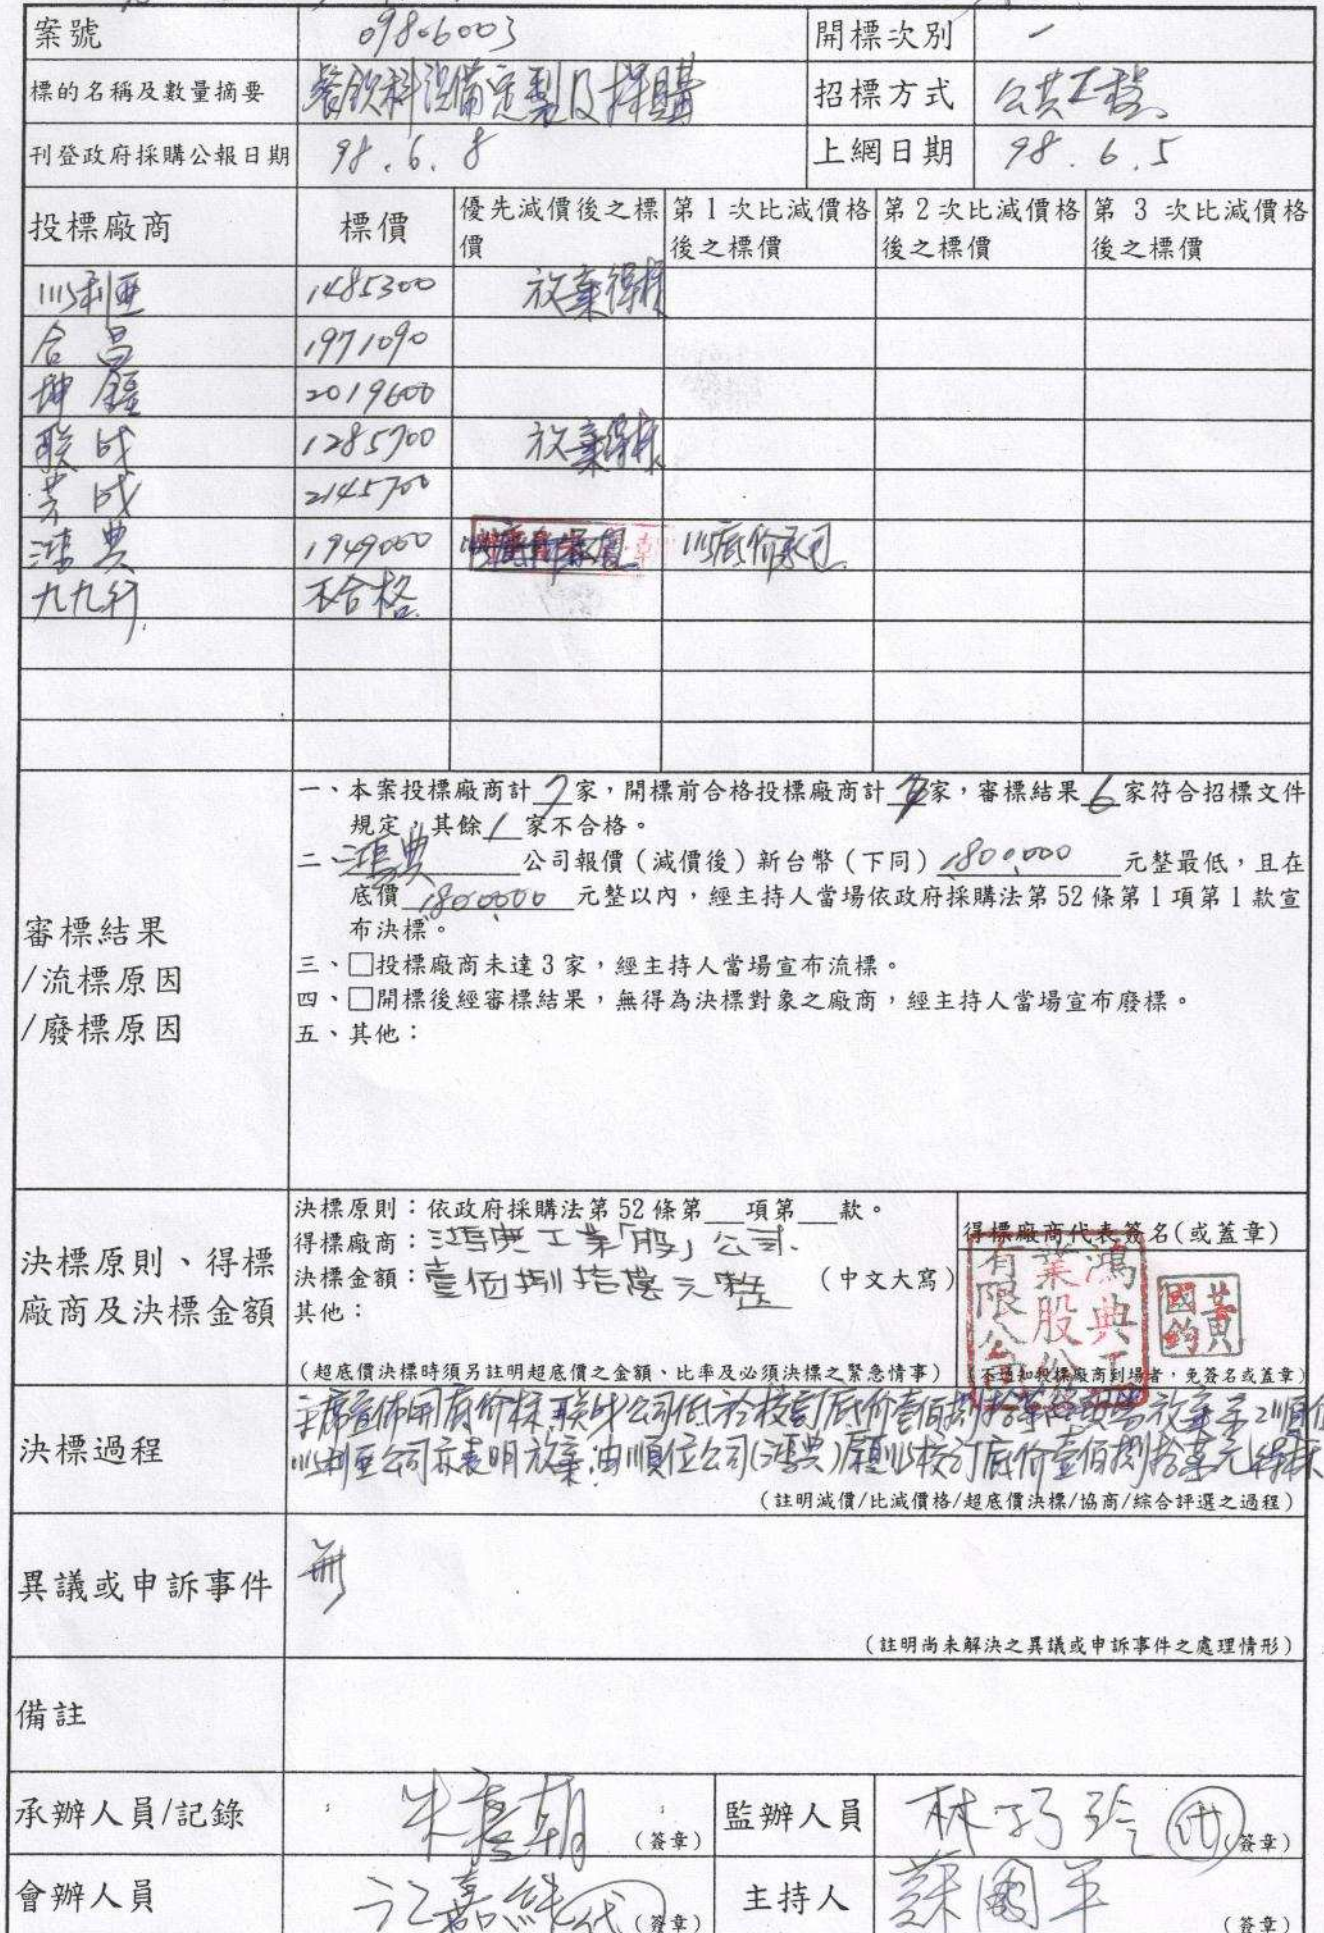 案號 09806003 開標次別 一
標的名稱及數量摘要 餐飲科設備定製及採購 招標方式 公共工程
刊登政府採購公報日期 98.6.8 上網日期 98.6.5
投標廠商 標價 優先減價後之標價 第1次比減價格後之標價 第2次比減價格後之標價 第3次比減價格後之標價
利亜 1485300 放棄得標
合昌 1971090
坤鑫 2019600
联成 1285700 放棄得標
芳成 2145700
鴻典 1949000 以底价承包
九九行 不合格
審標結果
/流標原因
/廢標原因
一、本案投標廠商計 7 家,開標前合格投標廠商計 家,審標結果 6 家符合招標文件
規定,其餘 1 家不合格。
二、鴻典 公司報價(減價後)新台幣(下同) 1800,000 元整最低,且在
底價 1800000 元整以內,經主持人當場依政府採購法第52條第1項第1款宣
布決標。
三、□投標廠商未達3家,經主持人當場宣布流標。
四、□開標後經審標結果,無得為決標對象之廠商,經主持人當場宣布廢標。
五、其他:
決標原則、得標
廠商及決標金額
決標原則:依政府採購法第52條第__項第__款。
得標廠商:鴻典工業「股」公司.
決標金額:壹佰捌拾萬元整 (中文大寫)
其他:
(超底價決標時須另註明超底價之金額、比率及必須決標之緊急情事)
得標廠商代表簽名(或蓋章)
鴻典工業股份有限公司
黃國鈞
(不通知投標廠商到場者,免簽名或蓋章)
決標過程
主席宣佈開底价標,联成公司低於核訂底价壹佰捌拾萬 放棄,第2順位
利亜公司亦表明放棄,由順位公司(鴻典)願以核訂底价壹佰捌拾萬元得標
(註明減價/比減價格/超底價決標/協商/綜合評選之過程)
異議或申訴事件 無
(註明尚未解決之異議或申訴事件之處理情形)
備註
承辦人員/記錄 (簽章) 監辦人員 林巧玲 代 (簽章)
會辦人員 江嘉純 代 (簽章) 主持人 蘇國平 (簽章)